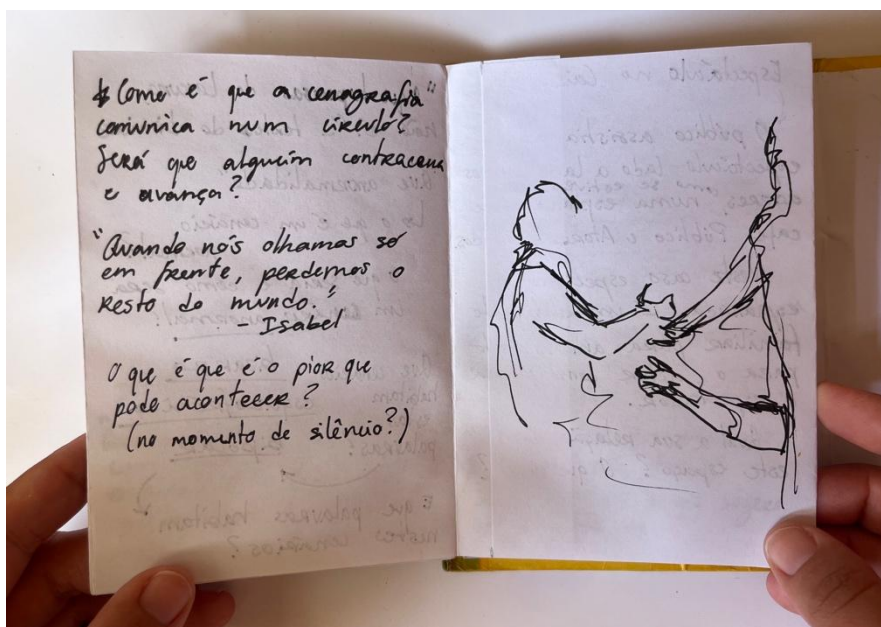 * Como é que a cenografia"
comunica num círculo?
Será que alguém contracena
e avança?
"Quando nós olhamos só
em frente, perdemos o
resto do mundo."
- Isabel
O que é que é o pior que
pode acontecer?
(no momento de silêncio?)